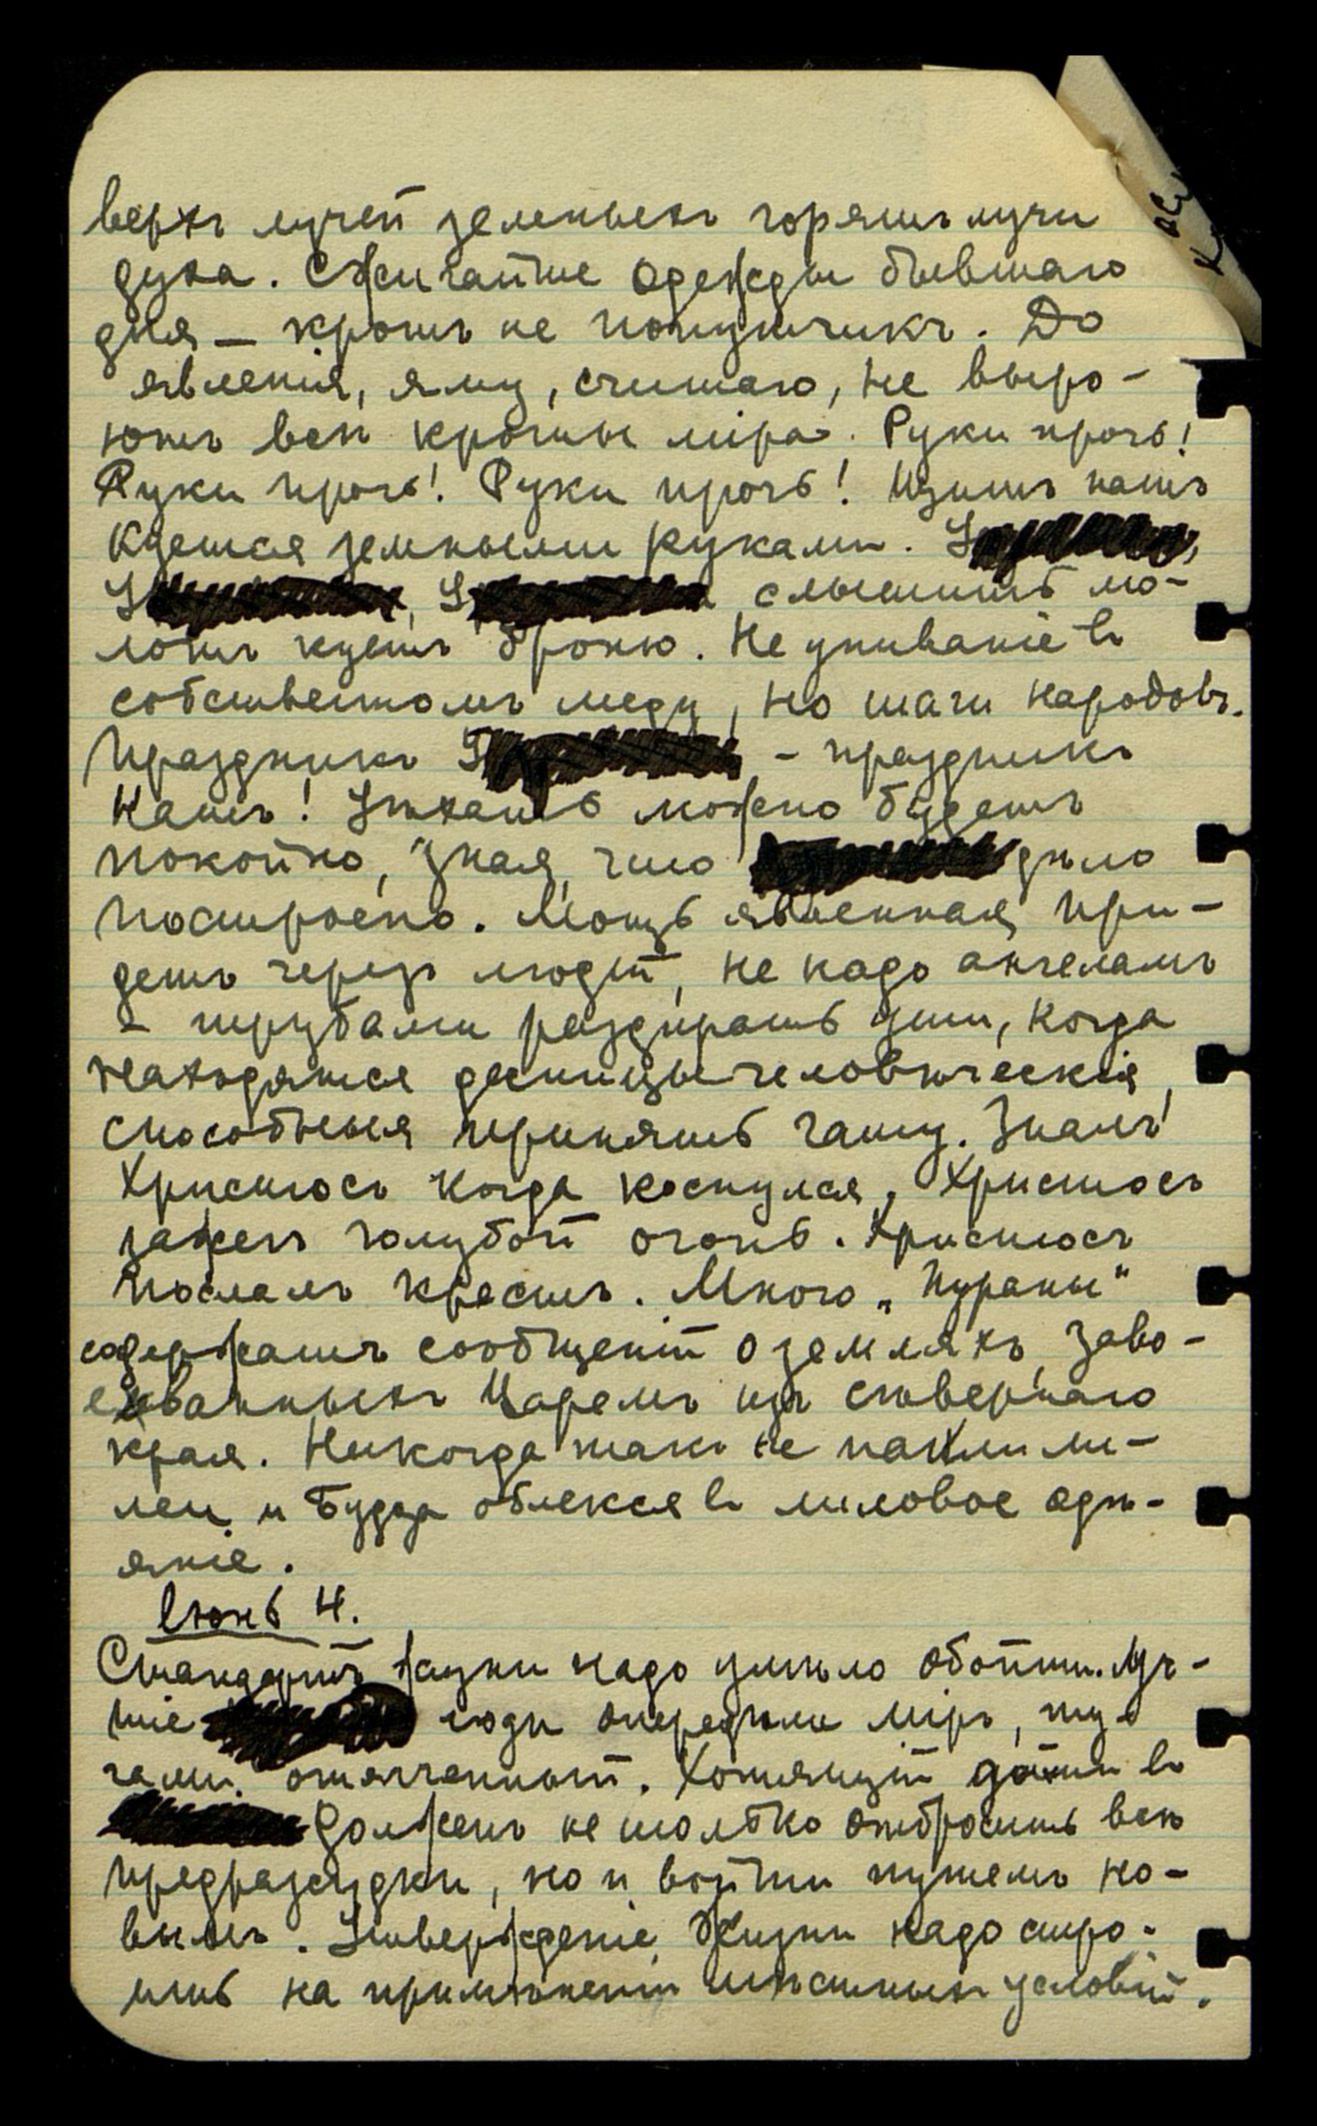 верхъ лучей земныхъ горятъ лучи
духа. Сжигайте одежды бывшаго
дня — кротъ не попутчикъ. До
явленія, яму, считаю, не выро-
ютъ всѣ кроты міра. Руки прочь!
Руки прочь! Руки прочь! Щитъ нашъ
куется земными руками.
слышитъ мо-
лотъ куетъ броню. Не упиваніе въ
собственномъ меду, но шаги народовъ.
Праздникъ – праздникъ
Нашъ! Уѣхать можно будетъ
покойно, зная, что дѣло
построено. Мощь явленная при-
детъ черезъ людей, не надо ангеламъ
– трубами раздирать уши, когда
находятся десницы человѣческія,
способныя принять чашу. Зналъ
Христосъ когда коснулся, Христосъ
зажегъ голубой огонь. Христосъ
послалъ крестъ. Много „Пураны"
содержатъ сообщеній о земляхъ, заво-
еванныхъ Царемъ изъ сѣвернаго
края. Никогда такъ не пахли ли-
леи и Будда облекся въ лиловое одѣ-
яніе.
Іюнь 4.
Стандартъ науки надо умѣло обойти. Луч-
шіе люди опередили міръ, ту-
чами отягченный. Хотящій дойти въ
долженъ не только отбросить всѣ
предразсудки, но и войти путемъ но-
вымъ. Утвержденіе Жизни надо стро-
ить на примѣненіи мѣстныхъ условій.